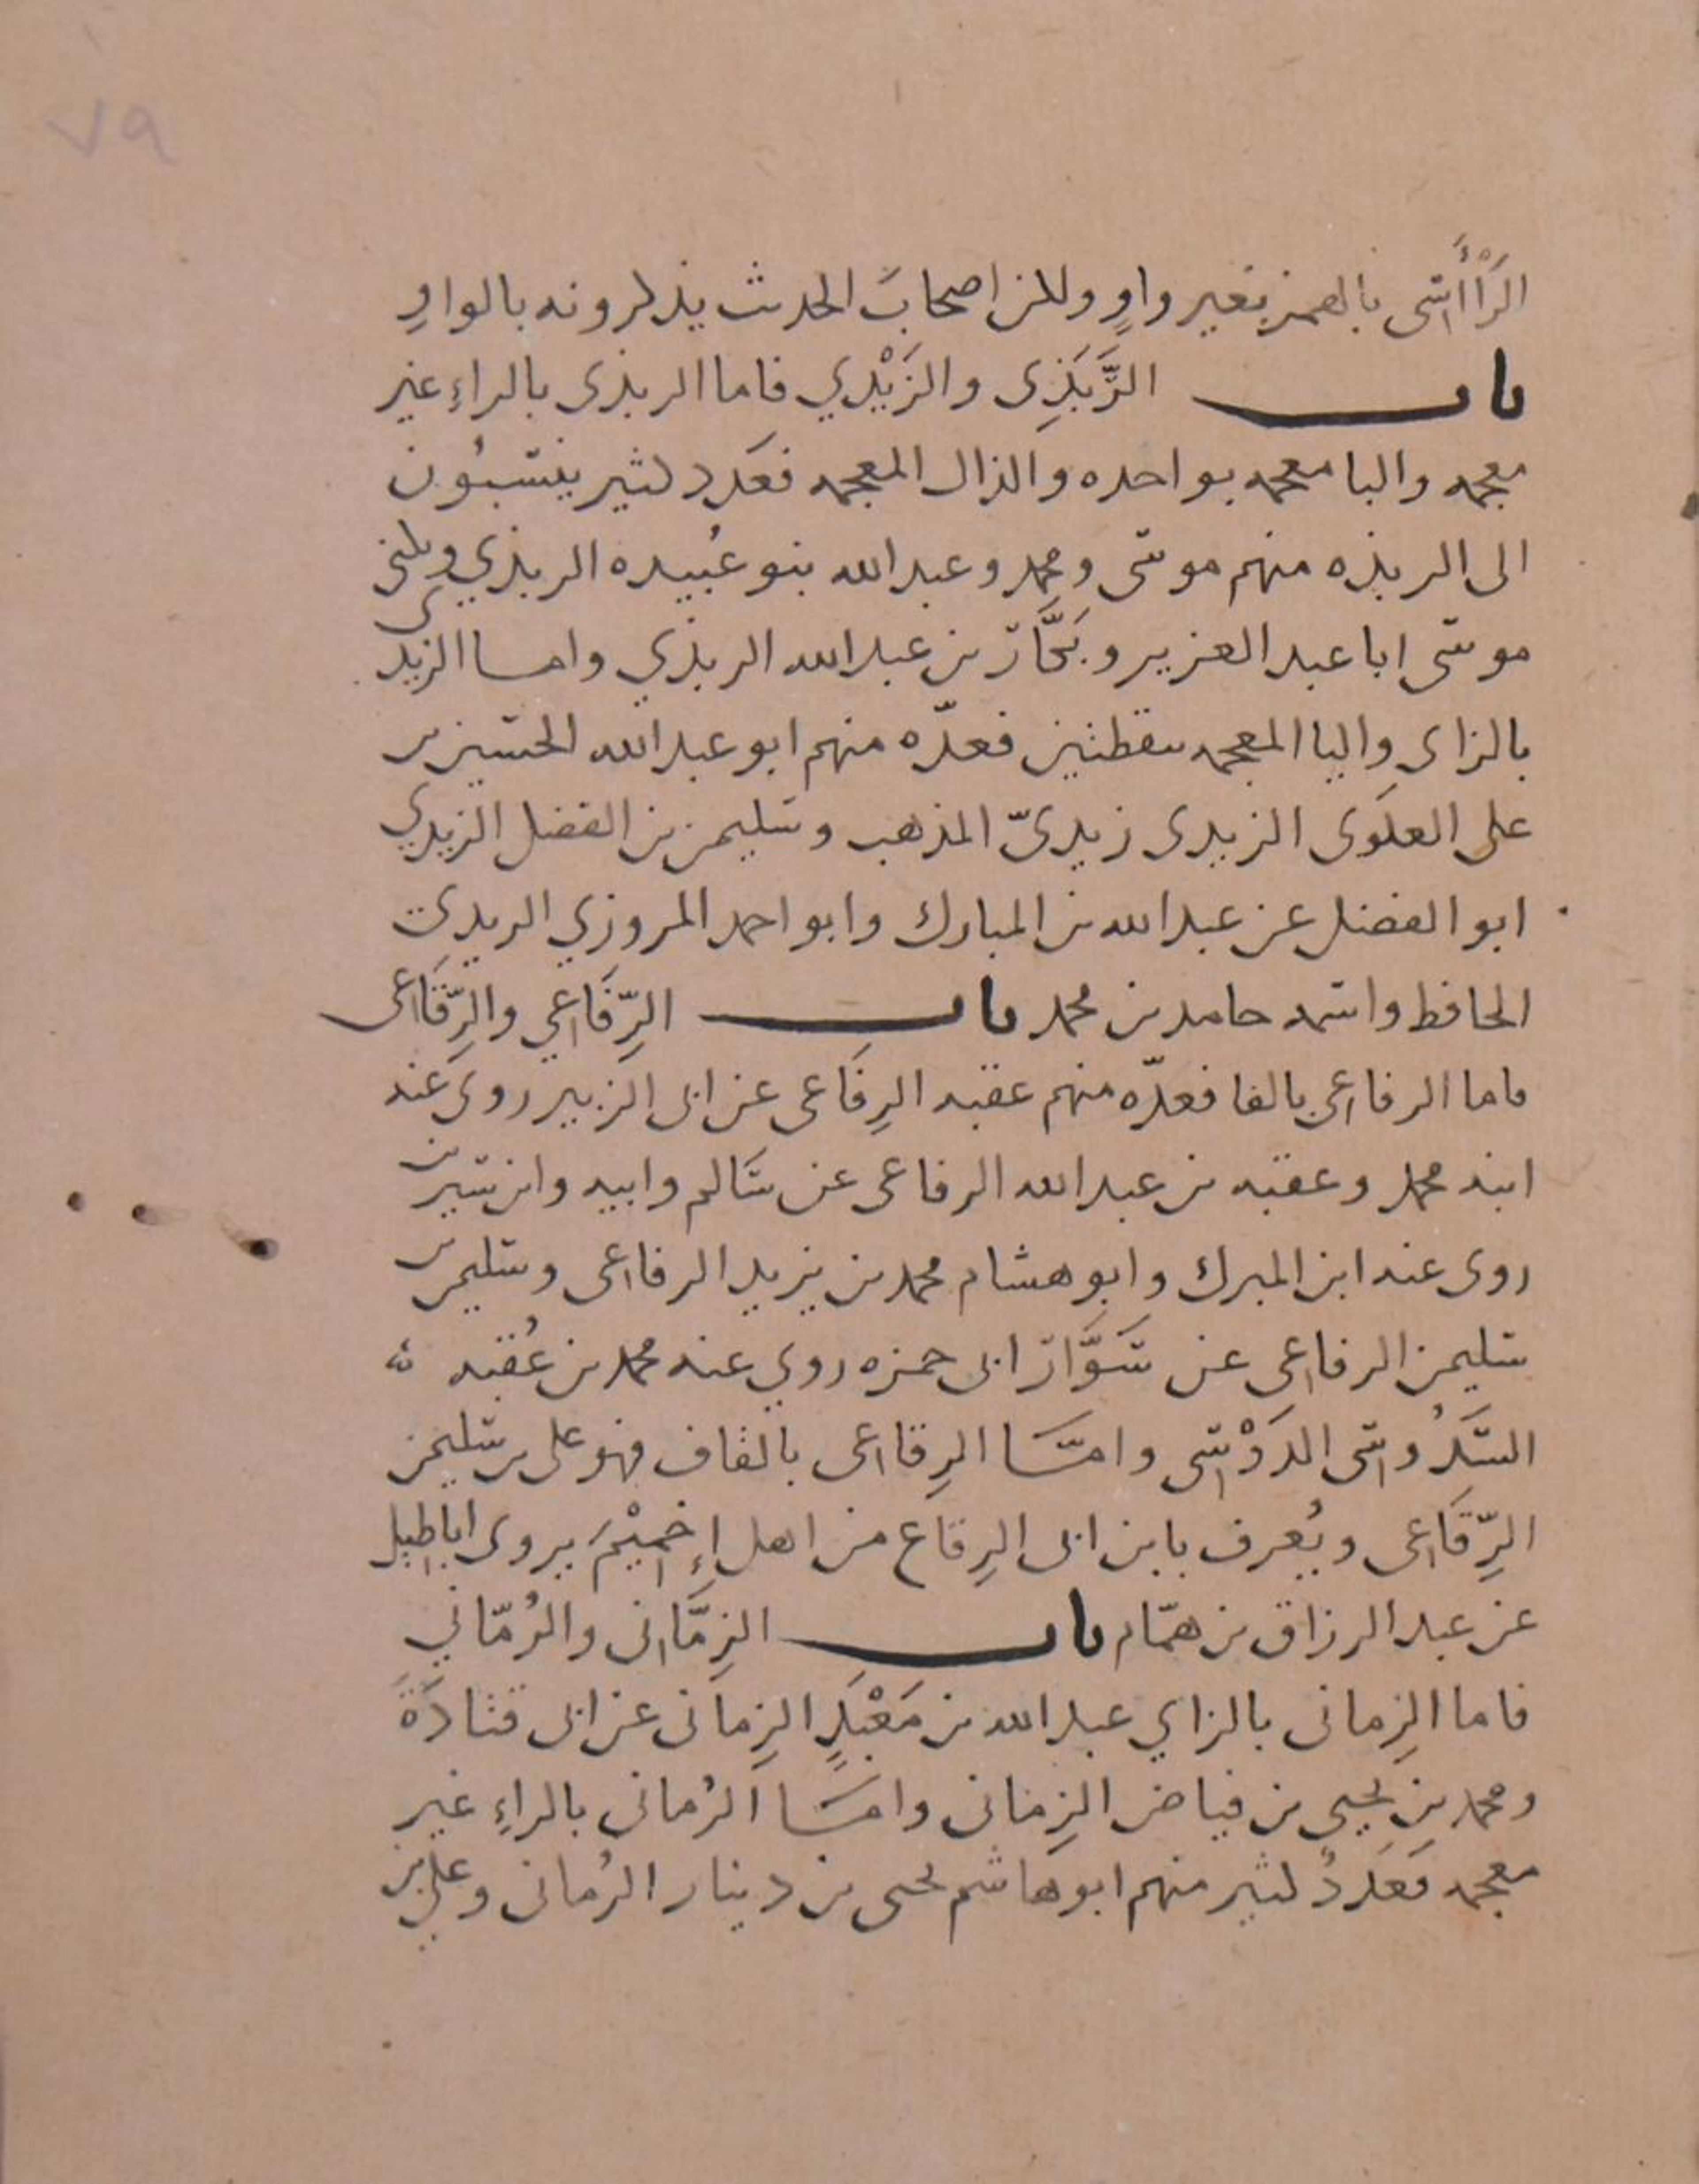 ٧٩
الرَّأَّاسى بالهمز بغير واوٍ ولكن اصحابَ الحديث يذكرونه بالواوِ
باب الرَّبَذِى والزَيْدي فاما الربذى بالراءِ غير
معجمه والبا معجمه بواحده والذال المعجمه فعَدد كثير ينتسبُون
الى الربذه منهم موسَى ومحمد وعبد الله بنو عُبيده الربذي ويكنى
موسَى ابا عبد العزيز وبَكَّار بن عبد الله الربذي واما الزيدى
بالزاى واليا المعجمه بنقطتين فعدّه منهم ابو عبد الله الحسين بن
على العلَوى الزيدى زيدىّ المذهب وسليمن بن الفضل الزيدي
ابو الفضل عن عبد الله بن المبارك وابو احمد المروزي الزيدي
الحافظ واسمه حامد بن محمد باب الرِّفَاعي والرِّقَاعى
فاما الرفاعى بالفا فعدّه منهم عقبه الرِفَاعى عن ابى الزبير روى عنه
ابنه محمد وعقبه بن عبد الله الرفاعى عن سَالم وابيه وابن سيرين
روى عنه ابن المبرك وابو هشام محمد بن يزيد الرفاعى وسليمن بن
سليمن الرفاعى عن سَوَّار ابى حمزه روي عنه محمد بن عُقبه
السَّدُوسى الدَوْسى وامَّا الرِقاعى بالقاف فهو على بن سليمن
الرِّقَاعى ويُعرف بابن ابى الرِقاع من اهل إِخميْمَ يروى اباطيل
عن عبد الرزاق بن همّام باب الزِمَّانى والرُمّاني
فاما الزِمانى بالزاي عبد الله بن مَعْبَدٍ الزِمانى عن ابى قتادَةَ
ومحمد بن يحيى بن فياض الزِمانى وامَّا الرُمانى بالراءِ غير
معجمه فعَددُ كثير منهم ابو هاشم يحيى بن دينار الرُمانى وعلي بن